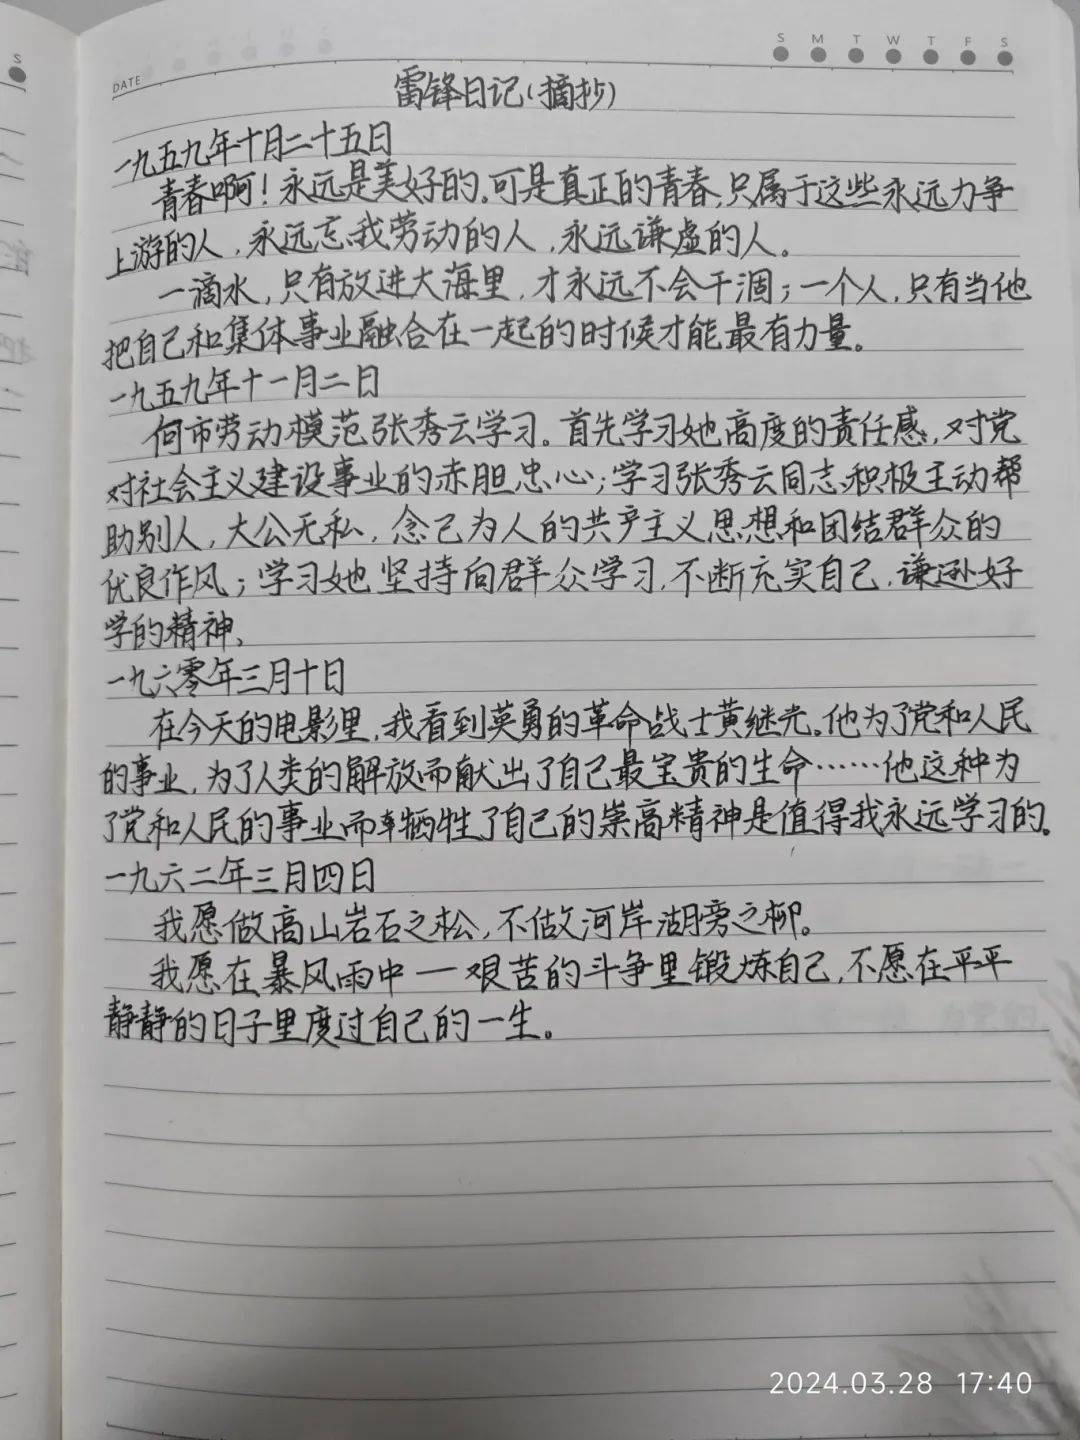 S
S M T W T F S
DATE
雷锋日记(摘抄)
一九五九年十月二十五日
青春啊!永远是美好的。可是真正的青春,只属于这些永远力争
上游的人,永远忘我劳动的人,永远谦虚的人。
一滴水,只有放进大海里,才永远不会干涸;一个人,只有当他
把自己和集体事业融合在一起的时候才能最有力量。
一九五九年十一月二日
向市劳动模范张秀云学习。首先学习她高度的责任感,对党
对社会主义建设事业的赤胆忠心;学习张秀云同志积极主动帮
助别人,大公无私,念己为人的共产主义思想和团结群众的
优良作风;学习她坚持向群众学习,不断充实自己,谦逊好
学的精神、
一九六零年三月十日
在今天的电影里,我看到英勇的革命战士黄继光。他为了党和人民
的事业,为了人类的解放而献出了自己最宝贵的生命……他这种为
了党和人民的事业而牺牲了自己的崇高精神是值得我永远学习的。
一九六二年三月四日
我愿做高山岩石之松,不做河岸湖旁之柳。
我愿在暴风雨中—艰苦的斗争里锻炼自己,不愿在平平
静静的日子里度过自己的一生。
2024.03.28 17:40